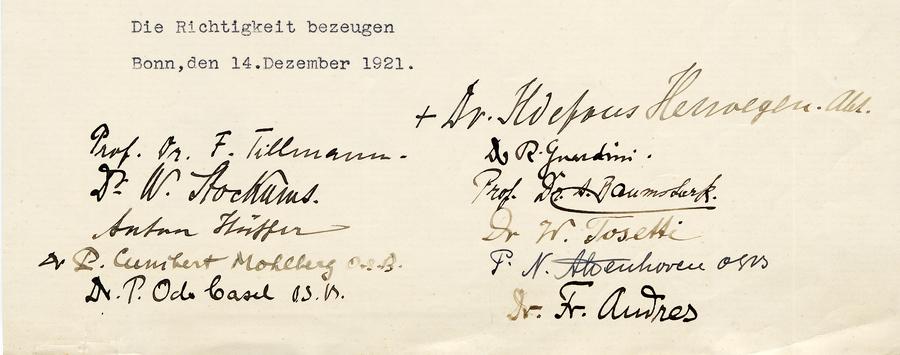 Die Richtigkeit bezeugen
Bonn,den 14.Dezember 1921.
+ Dr. Ildefons Herwegen. Abt.
Prof. Dr. F. Tillmann.
Dr. W. Stockums.
Anton Hüffer
Dr P. Cunibert Mohlberg O.S.B.
Dr. P. Odo Casel O.S.B.
Dr R. Guardini.
Prof. Dr. A. Baumstark.
Dr W. Tosetti
P. N. OSB
Dr. Fr. Andres